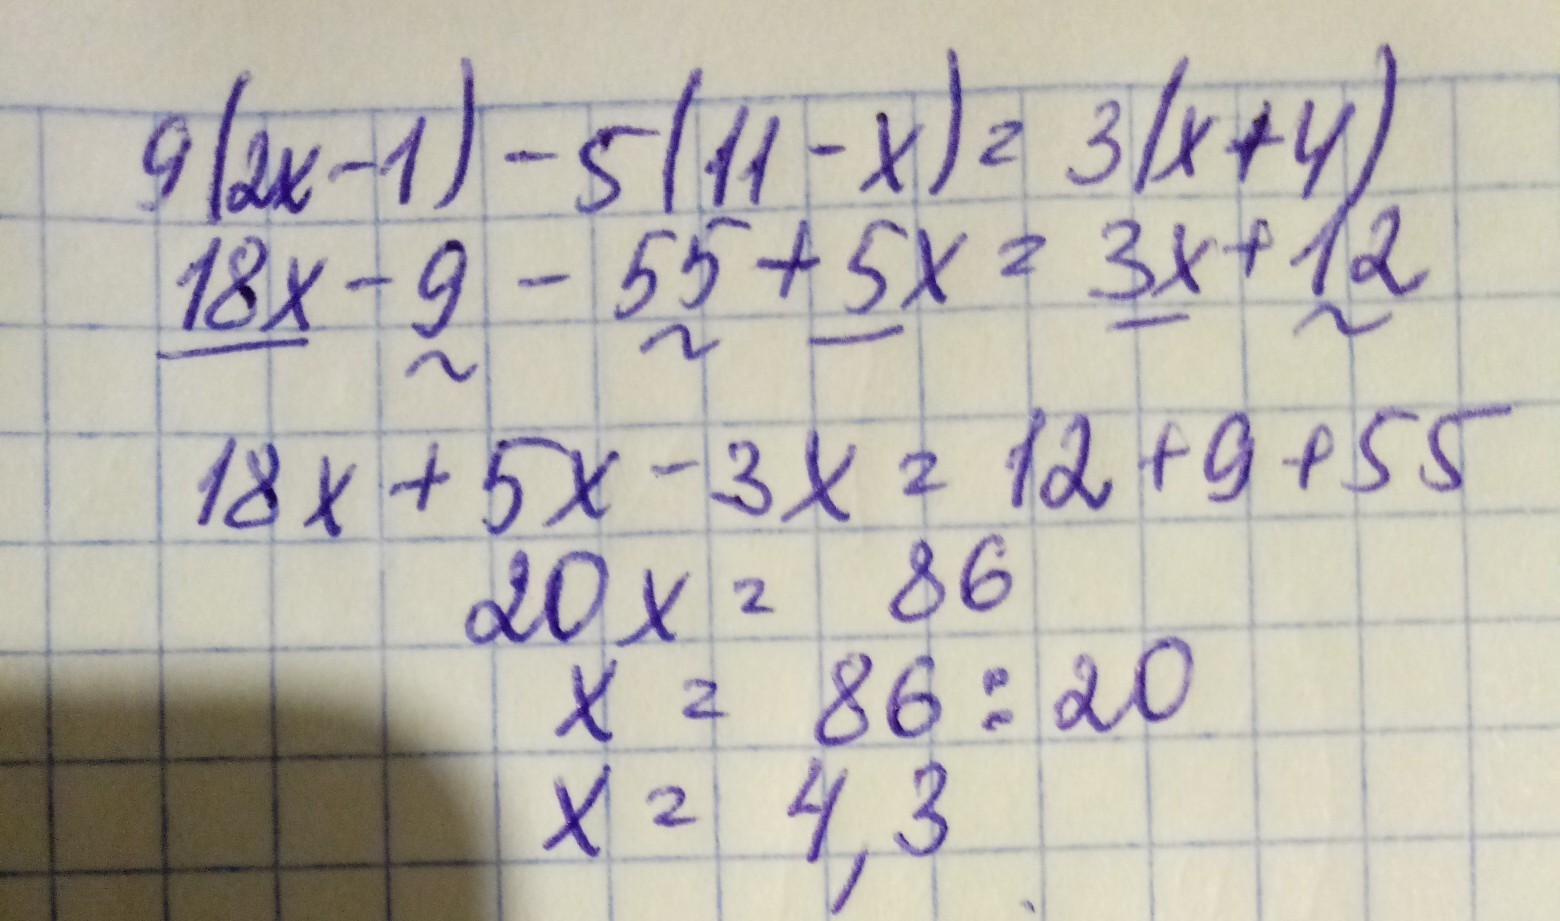 9(2x-1)-5(11-x)=3(x+4)
18x-9-55+5x=3x+12
18x+5x-3x=12+9+55
20x=86
x=86:20
x=4,3